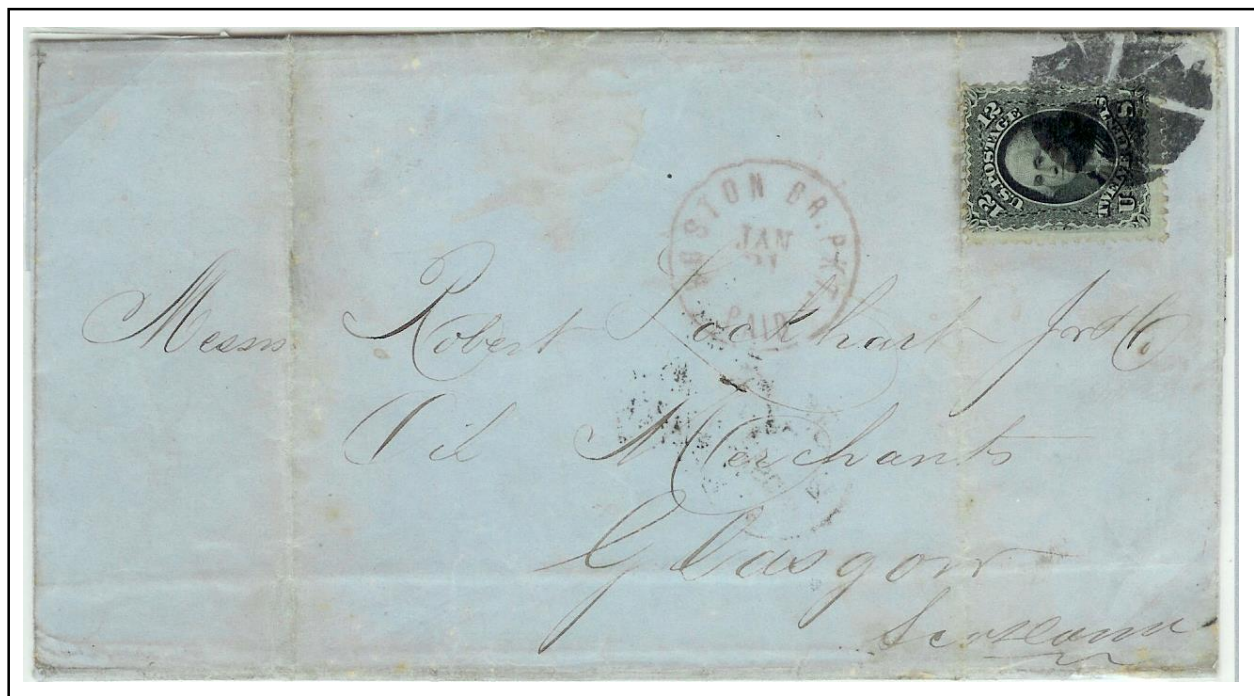 12 U.S. POSTAGE 12
TWELVE CENTS
U S
BOSTON BR. PKT.
JAN
PAID
Messrs Robert Lockhart Jr & Co.
Oil Merchants
Glasgow
Scotland